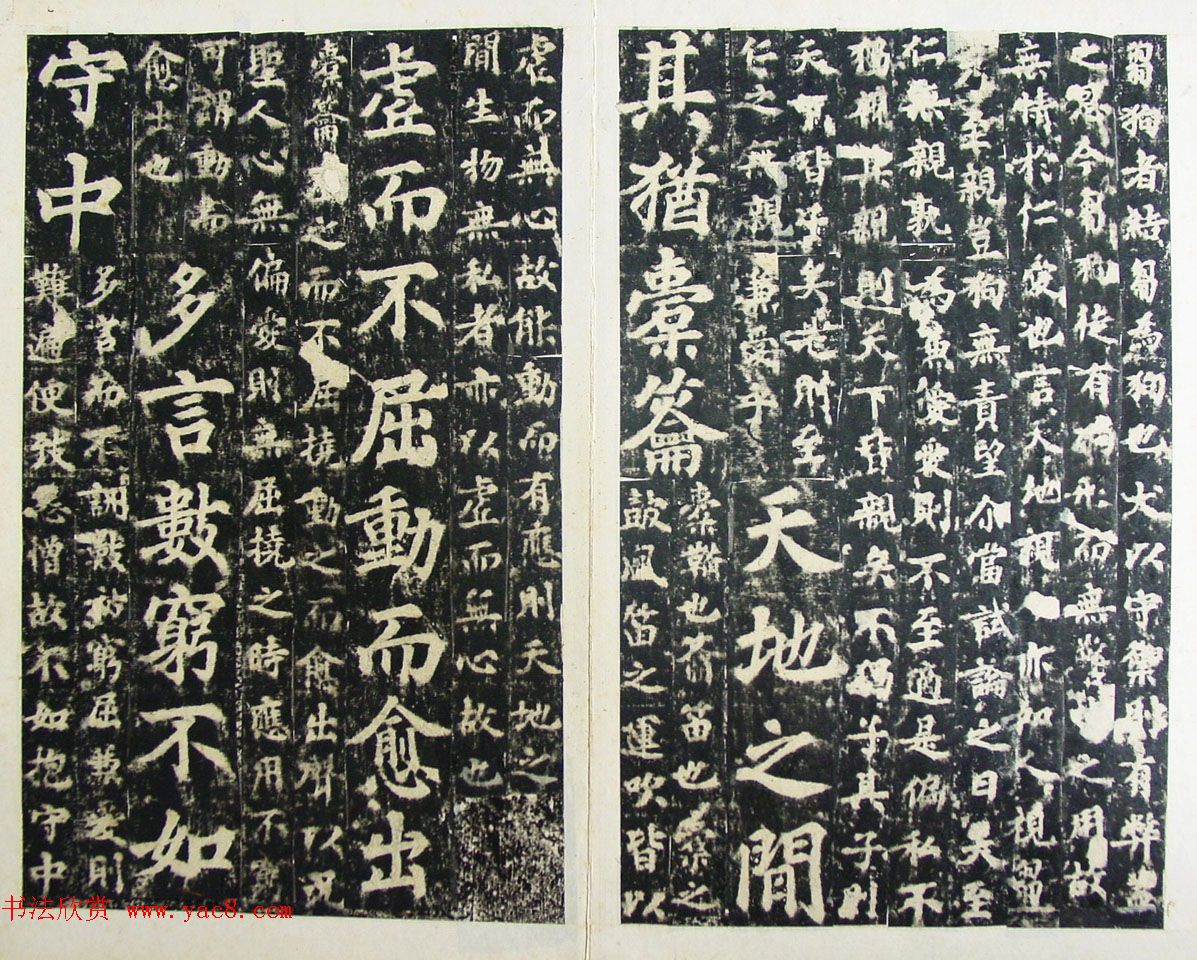 芻狗者結芻為狗也犬以守禦則有弊蓋
之恩今芻狗徒有狗形而無警吠之用故
無情於仁愛也言天地視人亦如人視芻
乃至親豈狗無責望尒當試論之曰夫至
仁無親孰為兼愛愛則不至適是偏私不
獨親其親則天下皆親矣不獨子其子則
天下皆子矣是則至
仁之無親兼愛乎
天地之間
其猶橐籥
橐鞴也籥笛也橐之
鼓風笛之運吹皆以
虛而無心故能動而有應則天地之
間生物無私者亦以虛而無心故也
虛而不屈動而愈出
橐籥虛之而不屈撓動之而愈出聲以況
聖人心無偏愛則無屈撓之時應用不窮
可謂動而
愈出也
多言數窮不如
守中
多言而不訓數被窮屈兼愛則
難遍便致怨憎故不如抱守中
书法欣赏 www.yac8.com